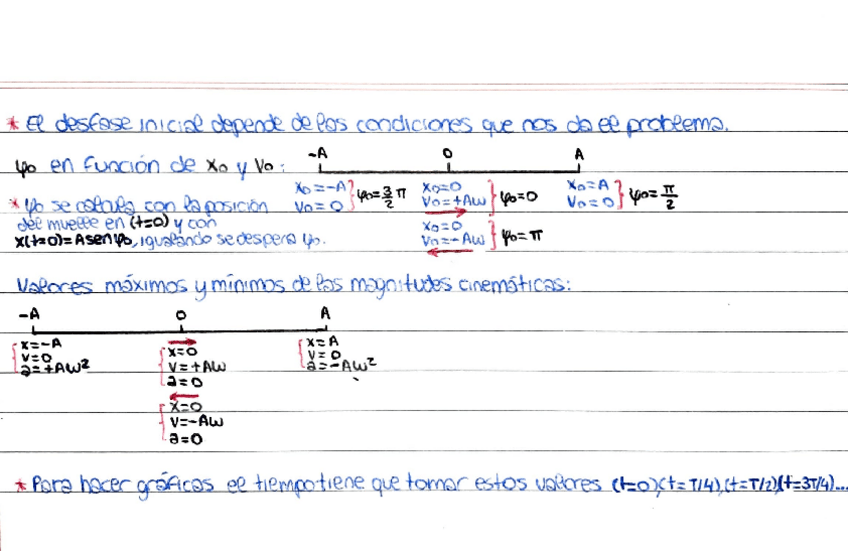 * El desfase inicial depende de las condiciones que nos da el problema.
φ₀ en función de x₀ y v₀:
-A 0 A
x₀=-A
v₀=0 } φ₀=3/2 π
x₀=0
v₀=+Aω } φ₀=0
x₀=A
v₀=0 } φ₀=π/2
x₀=0
v₀=-Aω } φ₀=π
* φ₀ se calcula con la posición
del muelle en (t=0) y con
x(t=0)=Asenφ₀, igualando se despeja φ₀.
Valores máximos y mínimos de las magnitudes cinemáticas:
-A 0 A
x=-A
v=0
a=+Aω²
x=0
v=+Aω
a=0
x=A
v=0
a=-Aω²
x=0
v=-Aω
a=0
* Para hacer gráficas el tiempo tiene que tomar estos valores (t=0),(t=T/4),(t=T/2)(t=3T/4)...